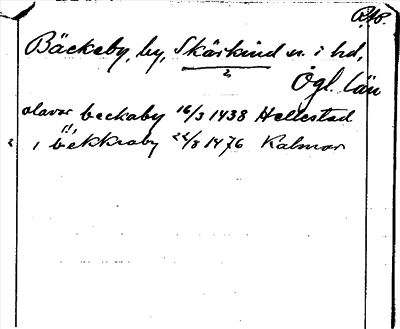 RAP.
Bäckeby, by, Skärkind sn. i hd,
2
Ögl. län
olavær beckaby 16/3 1438 Hellestad
i bekkaby 22/8 1476 Kalmar